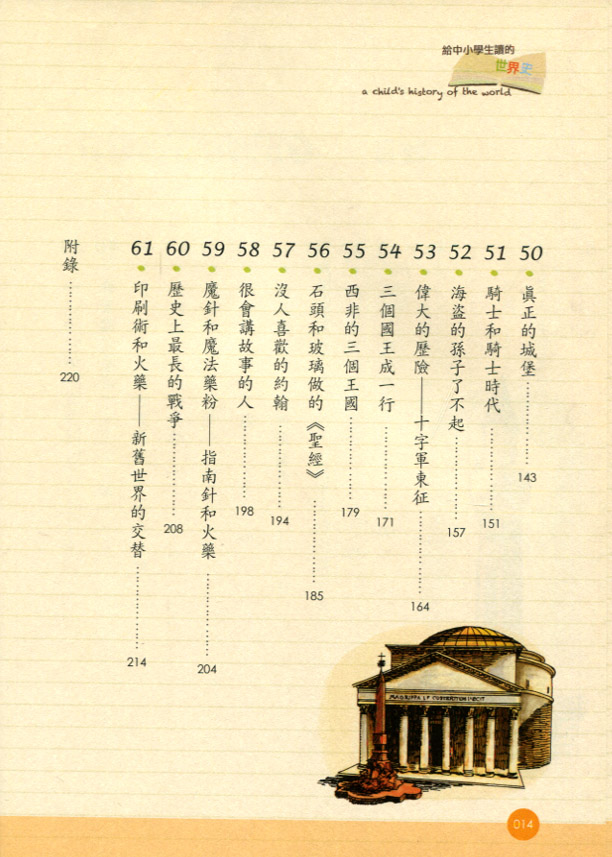 給中小學生讀的
世界史
a child's history of the world
50 真正的城堡……………143
51 騎士和騎士時代……………151
52 海盜的孫子了不起……………157
53 偉大的歷險——十字軍東征……………164
54 三個國王成一行……………171
55 西非的三個王國……………179
56 石頭和玻璃做的《聖經》……………185
57 沒人喜歡的約翰……………194
58 很會講故事的人……………198
59 魔針和魔法藥粉——指南針和火藥……………204
60 歷史上最長的戰爭……………208
61 印刷術和火藥——新舊世界的交替……………214
附錄……………220
014